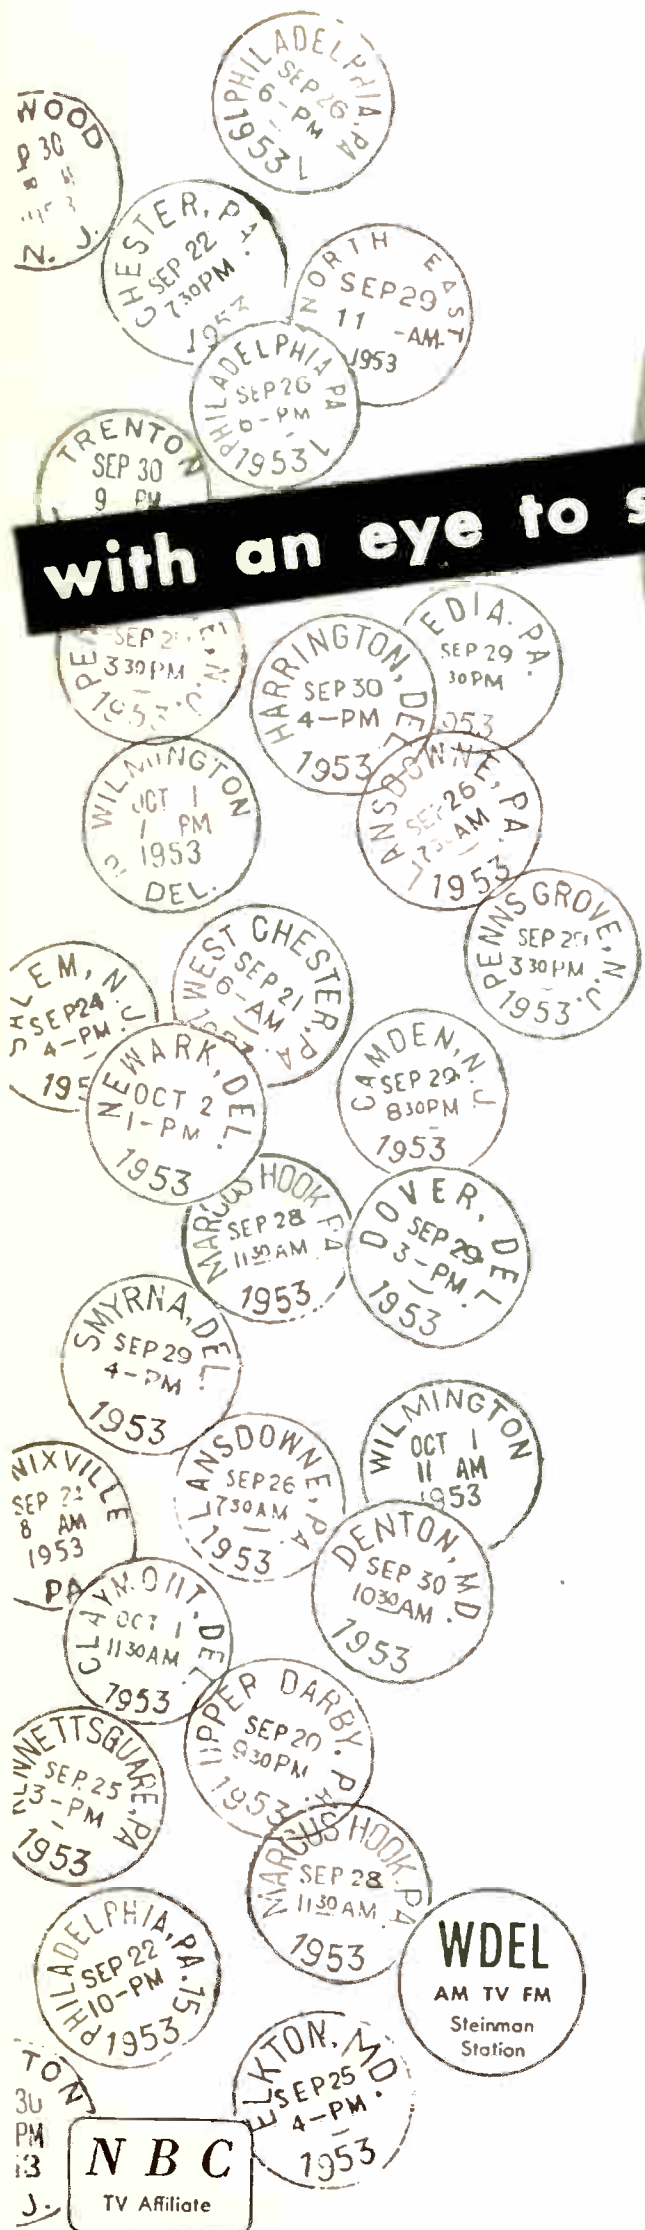 PHILADELPHIA, PA
SEP 26
6-PM
1953 1
WOOD
30
N. J.
CHESTER, PA.
SEP 22
730PM
1953
NORTH EAST
SEP 29
11 -AM-
1953
PHILADELPHIA PA
SEP 26
6-PM
1953 1
TRENTON
SEP 30
9 PM
with an eye to s
SEP
330PM
1953
N.J.
EDIA. PA.
SEP 29
30PM
1953
HARRINGTON, DEL
SEP 30
4-PM
1953
WILMINGTON
OCT 1
1 PM
1953
DEL.
LANSDOWNE, PA.
SEP 26
730AM
1953
PENNS GROVE, N.J.
SEP
330PM
1953
WEST CHESTER, PA.
SEP 21
6-AM
1953
SALEM, N.J.
SEP 24
4-PM
195
NEWARK, DEL.
OCT 2
1-PM
1953
CAMDEN, N.J.
SEP 29
830PM
1953
MARCUS HOOK PA
SEP 28
1130AM
1953
DOVER, DEL
SEP 29
3-PM.
1953
SMYRNA, DEL.
SEP 29
4-PM
1953
WILMINGTON
OCT 1
11 AM
1953
LANSDOWNE, PA.
SEP 26
730AM
1953
NIXVILLE
SEP
8 AM
1953
PA
DENTON, MD.
SEP 30
1030AM
1953
CLAYMONT, DEL
OCT 1
1130AM
1953
UPPER DARBY, PA.
SEP
930PM
1953
NNETTSQUARE, PA
SEP. 25
3-PM
1953
MARCUS HOOK PA
SEP 28
1130AM
1953
PHILADELPHIA, PA. 15
SEP 22
10-PM
1953
WDEL
AM TV FM
Steinman
Station
ELKTON, MD.
SEP 25
4-PM
1953
TON
30
PM
J.
NBC
TV Affiliate